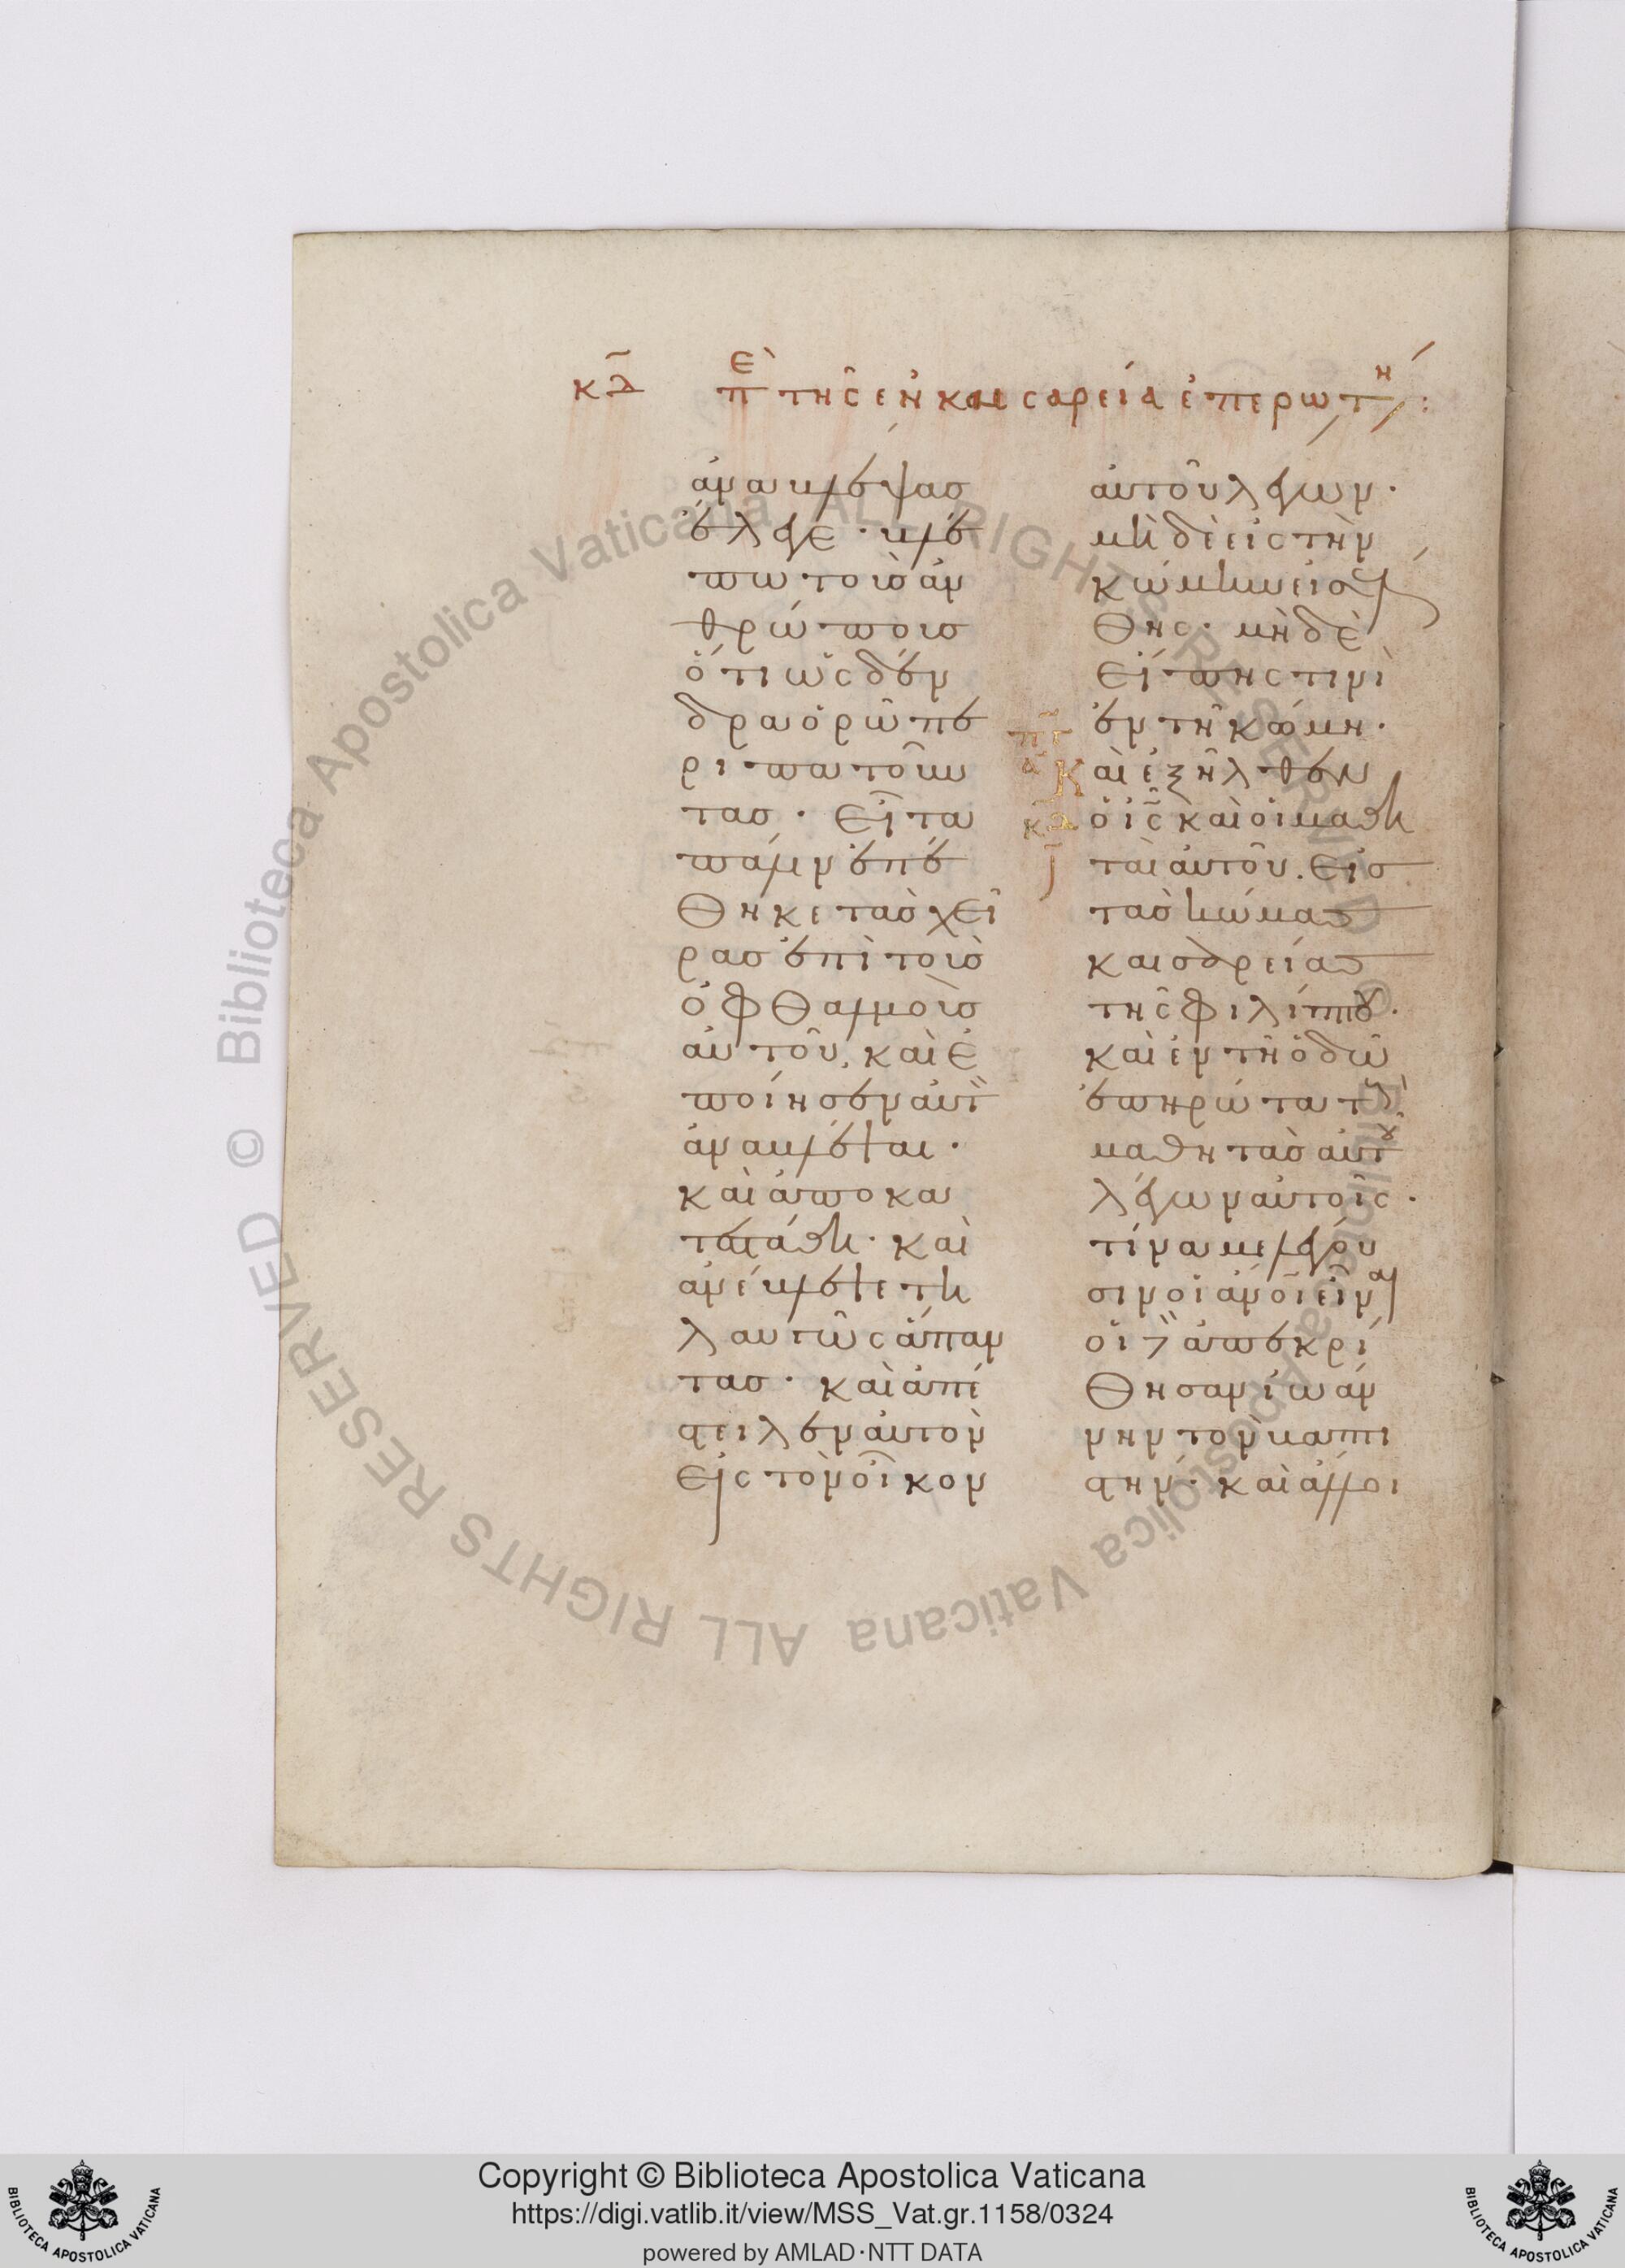 κδ ἐπὶ τῆς ἐν καισαρεία ἐπερωτή :
ἀναβλέψας
ἔλεγε · βλέ
πω τοὺς ἀν
θρώπους
ὅτι ὡς δέν
δρα ὁρῶ πε
ριπατοῦν
τας · εἶτα
πάλιν ἐπέ
θηκε τὰς χεῖ
ρας ἐπὶ τοὺς
ὀφθαλμοὺς
αὐτοῦ, καὶ ἐ
ποίησεν αὐτ
ἀναβλέψαι ·
καὶ ἀποκα
τεστάθη · καὶ
ἀνέβλεψε τη
λαυγῶς ἅπαν
τας · καὶ ἀπέ
στειλεν αὐτὸν
εἰς τὸν οἶκον
αὐτοῦ λέγων ·
μὴ δὲ εἰς τὴν
κώμην εἰσέλ
θης · μὴ δὲ
εἴπης τινὶ
ἐν τῆ κώμη ·
Καὶ ἐξῆλθεν
ὁ ις καὶ οἱ μαθη
ταὶ αὐτοῦ. εἰς
τὰς κώμας
καισαρείας
τῆς φιλίππου ·
καὶ ἐν τῆ ὁδῶ
ἐπηρώτα τοὺς
μαθητὰς αὐτοῦ
λέγων αὐτοῖς ·
τίνα με λέγου
σιν οἱ ἀνοι εἶναι
οἱ δὲ ἀπεκρί
θησαν ἰωάν
νην τὸν βαπτι
στήν · καὶ ἄλλοι
Copyright © Biblioteca Apostolica Vaticana
https://digi.vatlib.it/view/MSS_Vat.gr.1158/0324
powered by AMLAD·NTT DATA